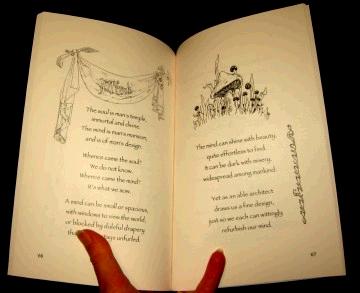 The soul is man's temple,
immortal and divine.
The mind is man's mansion,
and is of man's design.
Whence came the soul?
We do not know.
Whence came the mind?
It's what we sow.
A mind can be small or spacious,
with windows to view the world,
or blocked by doleful drapery
unfurled.
66
The mind can shine with beauty,
quite effortless to find.
It can be dark with misery,
widespread among mankind.
Yet as an able architect
draws us a fine design,
just so we each can wittingly
refurbish our mind.
67